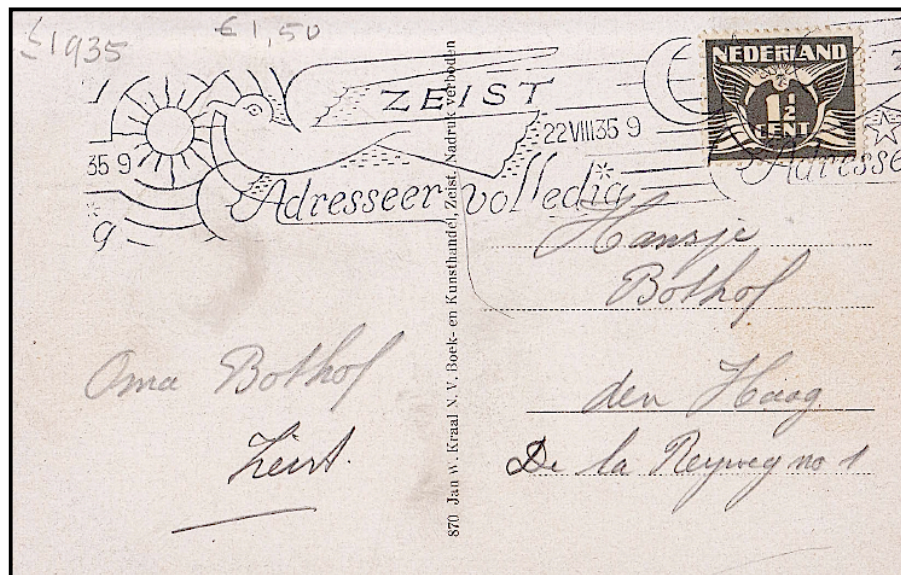 £1935
€1,50
ZEIST
22 VIII 35 9
35 9
Adresseer volledig
Adresse
g
NEDERLAND
1½
CENT
870 Jan W. Kraal N. V. Boek- en Kunsthandel, Zeist, Nadruk verboden
Oma Bothof
Zeist.
Hansje
Bothof
den Haag
De la Reyweg no 1